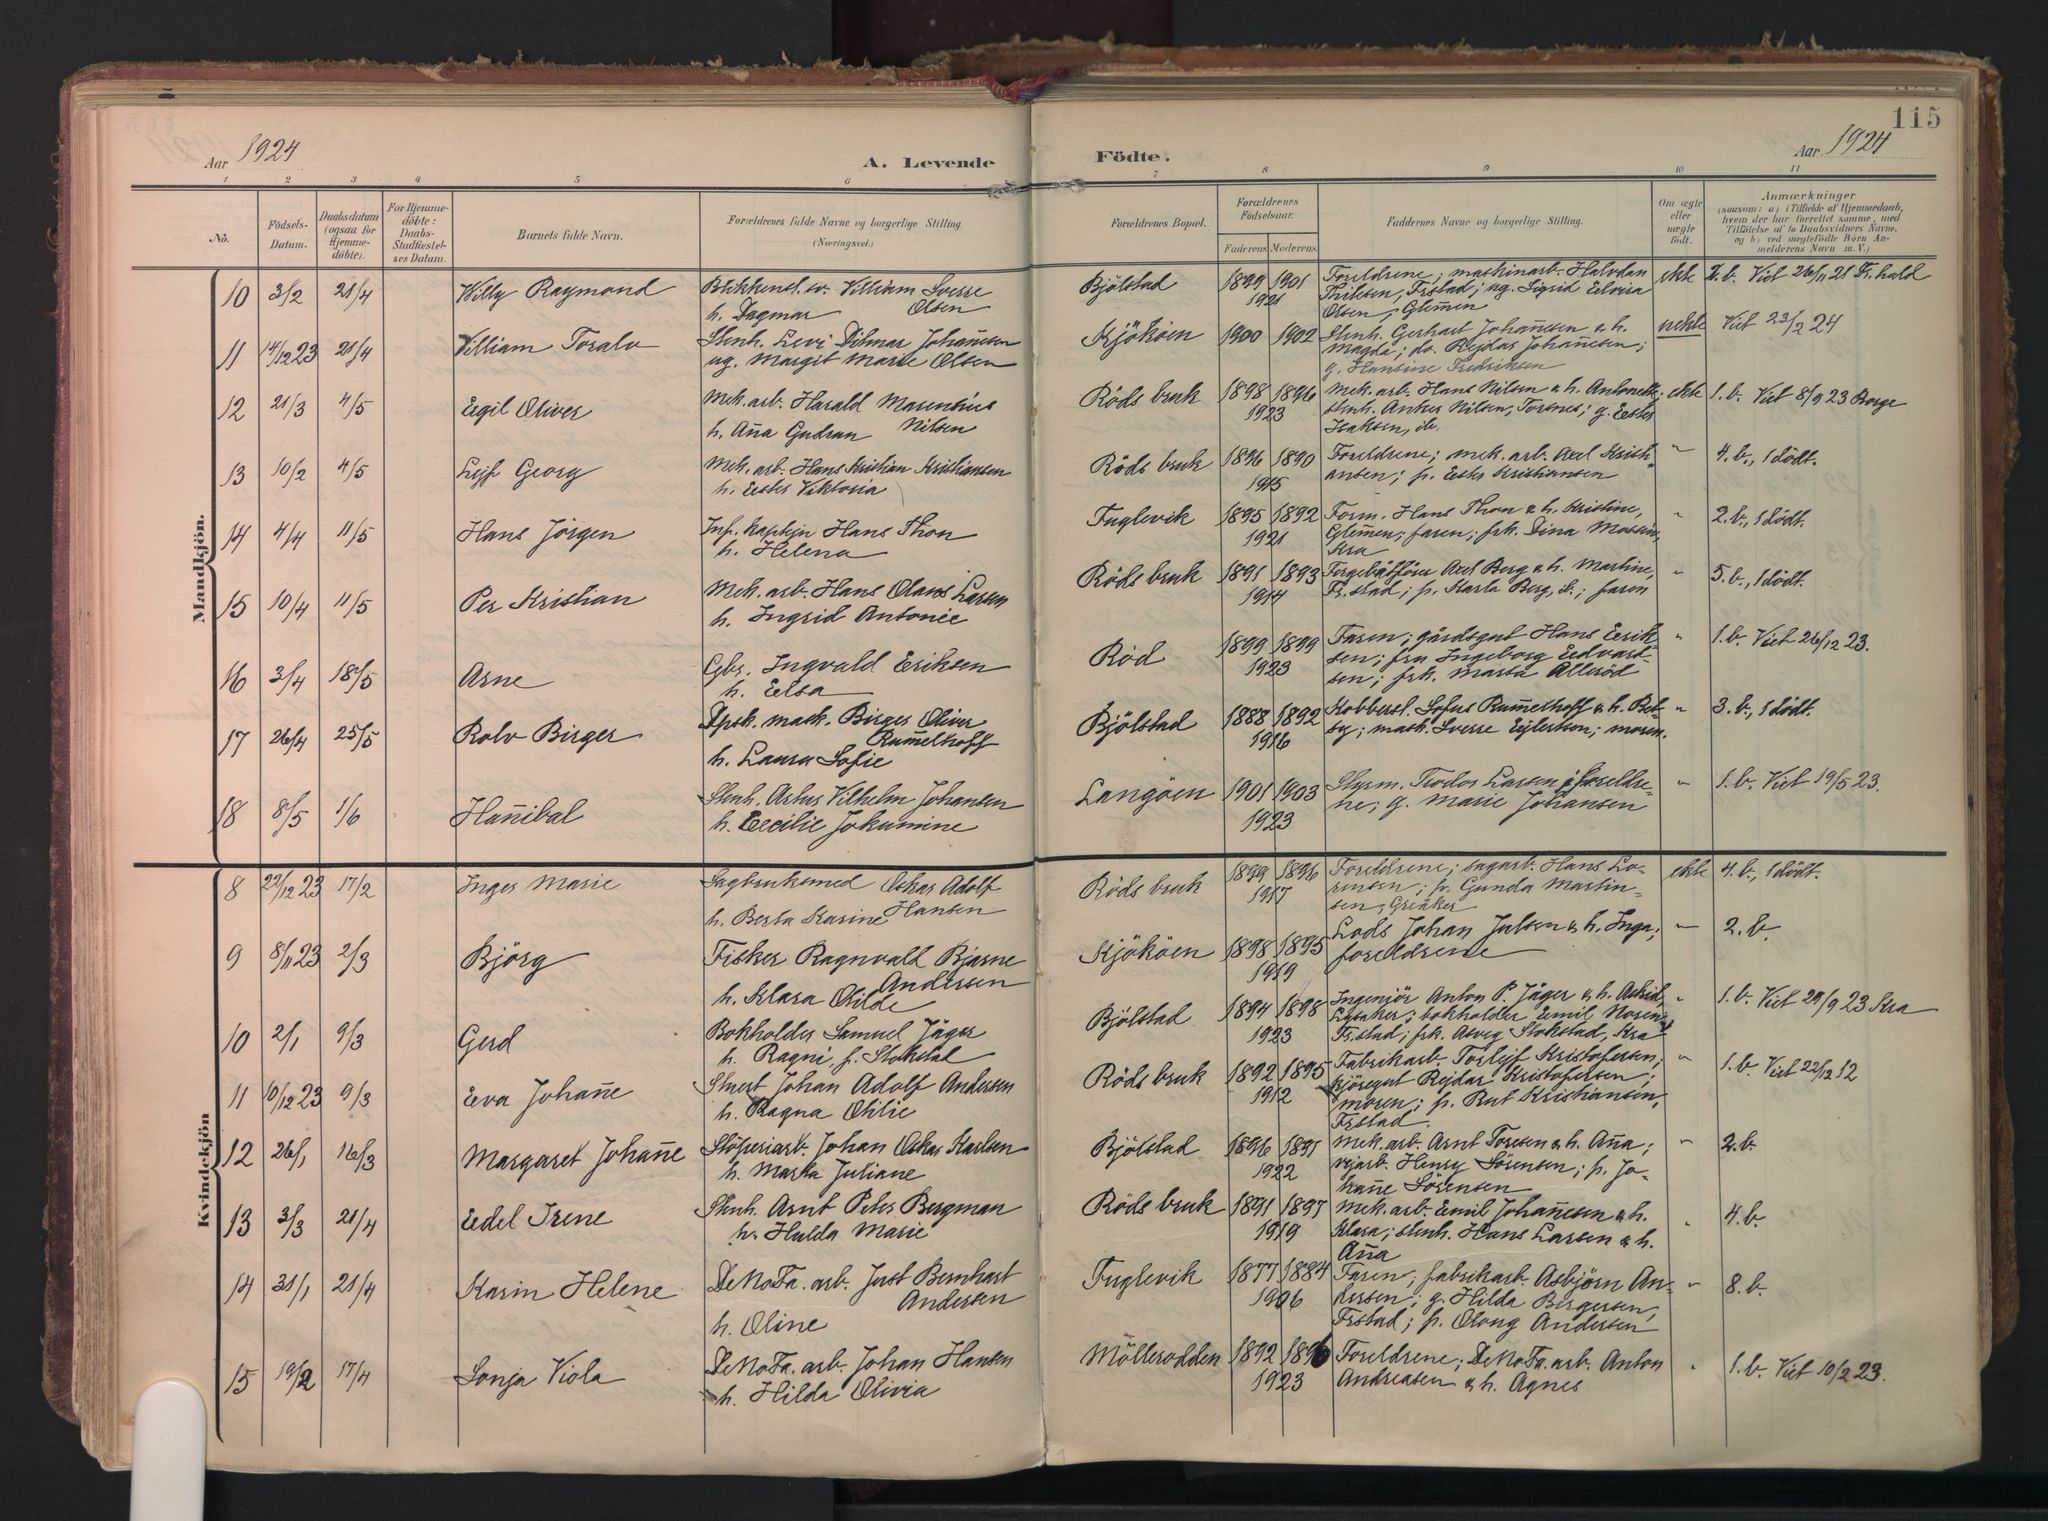 115
Aar 1924
A. Levende
Födte.
Aar 1924
1 2 3 4 5 6 7 8 9 10 11
No.
Födsels-
Datum.
Daabsdatum
(ogsaa for
Hjemme-
döbte).
For Hjemme-
döbte:
Daabs-
Stadfæstel-
ses Datum.
Barnets fulde Navn.
Forældrenes fulde Navne og borgerlige Stilling
(Næringsvei.)
Forældrenes Bopæl.
Forældrenes
Födselsaar.
Faderens. Moderens.
Faddernes Navne og borgerlige Stilling.
Om ægte
eller
uægte
födt.
Anmærkninger
(saasom: a) i Tilfælde af Hjemmedaab,
hvem der har forrettet samme, med
Tilföielse af to Daabsvidners Navne,
og b) ved uægtefödte Börn An-
melderens Navn m. V.)
Mandkjön.
10 3/2 21/4 Willy Raymond Blikkensl. sv. William Sverre Olsen
h. Dagmar
Bjölstad 1899 1901
1921
Foreldrene; maskinarb. Halvdan
Thiksen, Frstad; ug. Sigrid Elvira
Olsen, Glem̄en
ekte 2. b. Viet 26/11 21 Fr.hald
11 14/12 23 21/4 William Toralv Stenh. Levi Ditmar Johan̄esen
ug. Margit Marie Olsen
Kjököen 1900 1902
Stenh. Gerhart Johan̄esen o h.
Magda; do. Rejdar Johan̄esen;
g. Hansine Fredriksen
uekte Viet 23/2 24
12 21/3 4/5 Egil Oliver Mek. arb. Harald Marentius Nilsen
h. An̄a Gudrun
Röds bruk 1898 1896
1923
Mek. arb. Hans Nilsen o h. Antonette;
stenh. Anker Nilsen, Torsnes; g. Ester
Isaksen, ib.
ekte 1. b. Viet 8/9 23 Borge
13 10/2 4/5 Lejf Georg Mek. arb. Hans Kristian Kristiansen
h. Ester Viktoria
Röds bruk 1896 1890
1915
Foreldrene; mek. arb. Axel Kristi-
ansen; p. Ester Kristiansen
" 4. b., 1 dödt.
14 4/4 11/5 Hans Jörgen Inf. kaptejn Hans Thon
h. Helena
Fuglevik 1895 1892
1921
Form. Hans Thon o h. Kristine,
Glem̄en; faren; frk. Dina
Kra
" 2. b., 1 dödt.
15 10/4 11/5 Per Kristian Mek. arb. Hans Olaves Larsen
h. Ingrid Antonie
Röds bruk 1891 1893
1914
Fergebåtförer Axel Berg o h. Martine,
Fr.stad; p. Karla Berg, ib.; faren
" 5. b., 1 dödt.
16 3/4 18/5 Arne Gbr. Ingvald Eriksen
h. Elsa
Röd 1899 1899
1923
Faren; gårdsgut Hans Erik-
sen; fru Ingeborg Edvart-
sen; frk. Marta Alleröd
" 1. b. Viet 26/12 23.
17 26/4 25/5 Rolv Birger Dpsk. mask. Birger Oliver Rum̄elhoff
h. Laura Sofie
Bjölstad 1888 1892
1916
Kobbersl. Sofus Rum̄elhoff o h. Bet-
sy; mask. Sverre Ejlertsen; moren.
" 3. b., 1 dödt.
18 8/5 1/6 Han̄ibal Stenh. Artur Vilhelm Johansen
h. Cecilie Jokumine
Langöen 1901 1903
1923
Styrm. Teodor Larsen; foreldre-
ne; g. Marie Johansen
" 1. b. Viet 19/5 23.
Kvindekjön
8 22/12 23 17/2 Inger Marie Sagbruksmed Oskar Adolf Hansen
h. Berta Karine
Röds bruk 1899 1896
1917
Foreldrene; sagarb. Hans Lo-
rensen; p. Gunda Martin-
sen, Greåker
ekte 4. b., 1 dödt.
9 8/11 23 2/3 Björg Fisker Ragnvald Bjarne Andersen
h. Klara Otilde
Kjököen 1898 1895
1919
Lods Johan Julsen o h. Inga;
foreldrene
" 2. b.
10 2/1 9/3 Gerd Bokholder Samuel Jäger
h. Ragni f. Stokstad
Bjölstad 1894 1898
1923
Ingenjör Anton P. Jäger o h. Astrid,
Lysaker; bokholder Emil Noren,
Fr.stad; frk. Asveg Stokstad, Kra
" 1. b. Viet 29/9 23 Kra
11 10/12 23 9/3 Eva Johan̄e Stuert Johan Adolf Andersen
h. Ragna Otilie
Röds bruk 1892 1895
1912
Fabrikarb. Torlejf Kristofersen;
kjöregut Rejdar Kristofersen;
moren; p. Rut Kristiansen,
Frstad.
" 1. b. Viet 22/12 12
12 26/1 16/3 Margaret Johan̄e Stöperiarb. Johan Oskar Karlsen
h. Marta Juliane
Bjölstad 1896 1891
1922
Mek. arb. Arnt Toresen o h. An̄a;
vejarb. Henry Sörensen; p. Jo-
han̄e Sörensen
" 2. b.
13 3/3 21/4 Edel Irene Stenh. Arnt Peter Bergman
h. Hulda Marie
Röds bruk 1891 1897
1919
Mek. arb. Emil Johan̄esen o h.
Klara; stenh. Hans Larsen o h.
An̄a
" 4. b.
14 31/1 21/4 Karin Helene DeNoFa. arb. Just Bernhart Andersen
h. Oline
Fuglevik 1877 1884
1906
Faren; fabrikarb. Asbjörn An-
dersen; g. Hilda Bergersen,
Frstad; p. Oloug Andersen
" 8. b.
15 19/2 17/4 Sonja Viola DeNoFa. arb. Johan Hansen
h. Hilda Olivia
Möllerodden 1892 1896
1923
Foreldrene; DeNoFa. arb. Anton
Andreasen o h. Agnes
" 1. b. Viet 10/2 23.